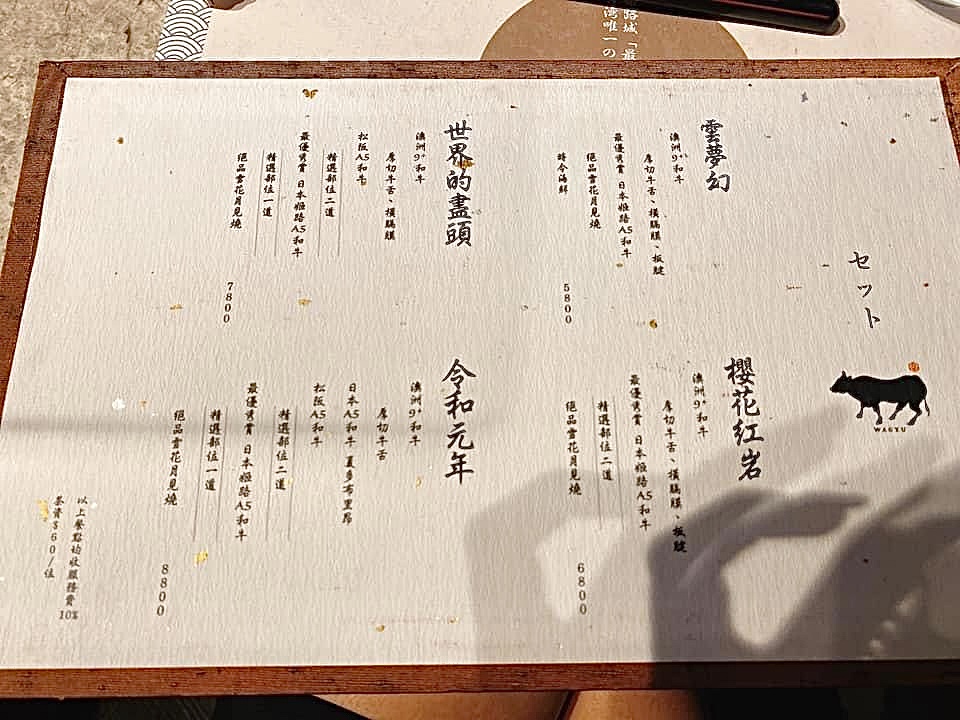 路城「最
灣唯一の
セット
WAGYU
雲夢幻
澳洲9⁺和牛
厚切牛舌、橫膈膜、板腱
最優秀賞 日本姬路A5和牛
絕品雪花月見燒
時令海鮮
5800
櫻花紅岩
澳洲9⁺和牛
厚切牛舌、橫膈膜、板腱
最優秀賞 日本姬路A5和牛
精選部位二道
絕品雪花月見燒
6800
世界的盡頭
澳洲9⁺和牛
厚切牛舌、橫膈膜
松阪A5和牛
精選部位二道
最優秀賞 日本姬路A5和牛
精選部位一道
絕品雪花月見燒
7800
令和元年
澳洲9⁺和牛
厚切牛舌
日本A5和牛 夏多布里昂
松阪A5和牛
精選部位二道
最優秀賞 日本姬路A5和牛
精選部位一道
絕品雪花月見燒
8800
以上餐點均收服務費10%
茶資$60/位